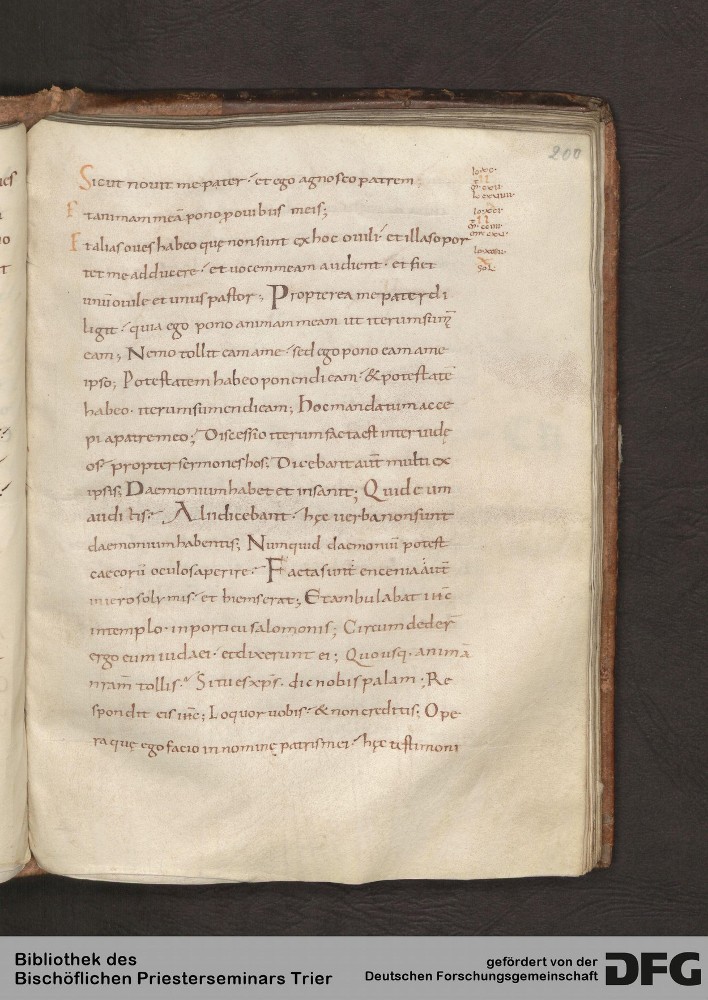 200
Sicut nouit me pater· et ego agnosco patrem;
Et animam meā pono p ouibus meis;
Et alias oues habeo quę non sunt ex hoc ouili· et illas opor
tet me adducere· et uocem meam audient· et fiet
unū ouile et unus pastor; Propterea me pater di
ligit· quia ego pono animam meam ut iterum sumā
eam; Nemo tollit eam a me· sed ego pono eam a me
ipso; Potestatem habeo ponendi eam· & potestatē
habeo· iterum sumendi eam; Hoc mandatum acce
pi a patre meo; Discessio iterum facta est inter iudę
os· propter sermones hos; Dicebant aut̄ multi ex
ipsis; Daemonium habet et insanit; Quid eum
auditis· Alii dicebant· hęc uerba non sunt
daemonium habentis; Numquid daemoniū potest
caecorū oculos aperire· Facta sunt encenia aut̄
in ierosolymis· et hiems erat; Et ambulabat ihc̄
in templo· in porticu salomonis; Circumdeder̄
ergo eum iudaei· et dixerunt ei; Quousq· animā
nram̄ tollis· Si tu es xp̄s· dic nobis palam; Re
spondit eis ihc̄; Loquor uobis· & non creditis; Ope
ra quę ego facio in nominę patris mei· hęc testimoni
Bibliothek des
Bischöflichen Priesterseminars Trier
gefördert von der
Deutschen Forschungsgemeinschaft
DFG